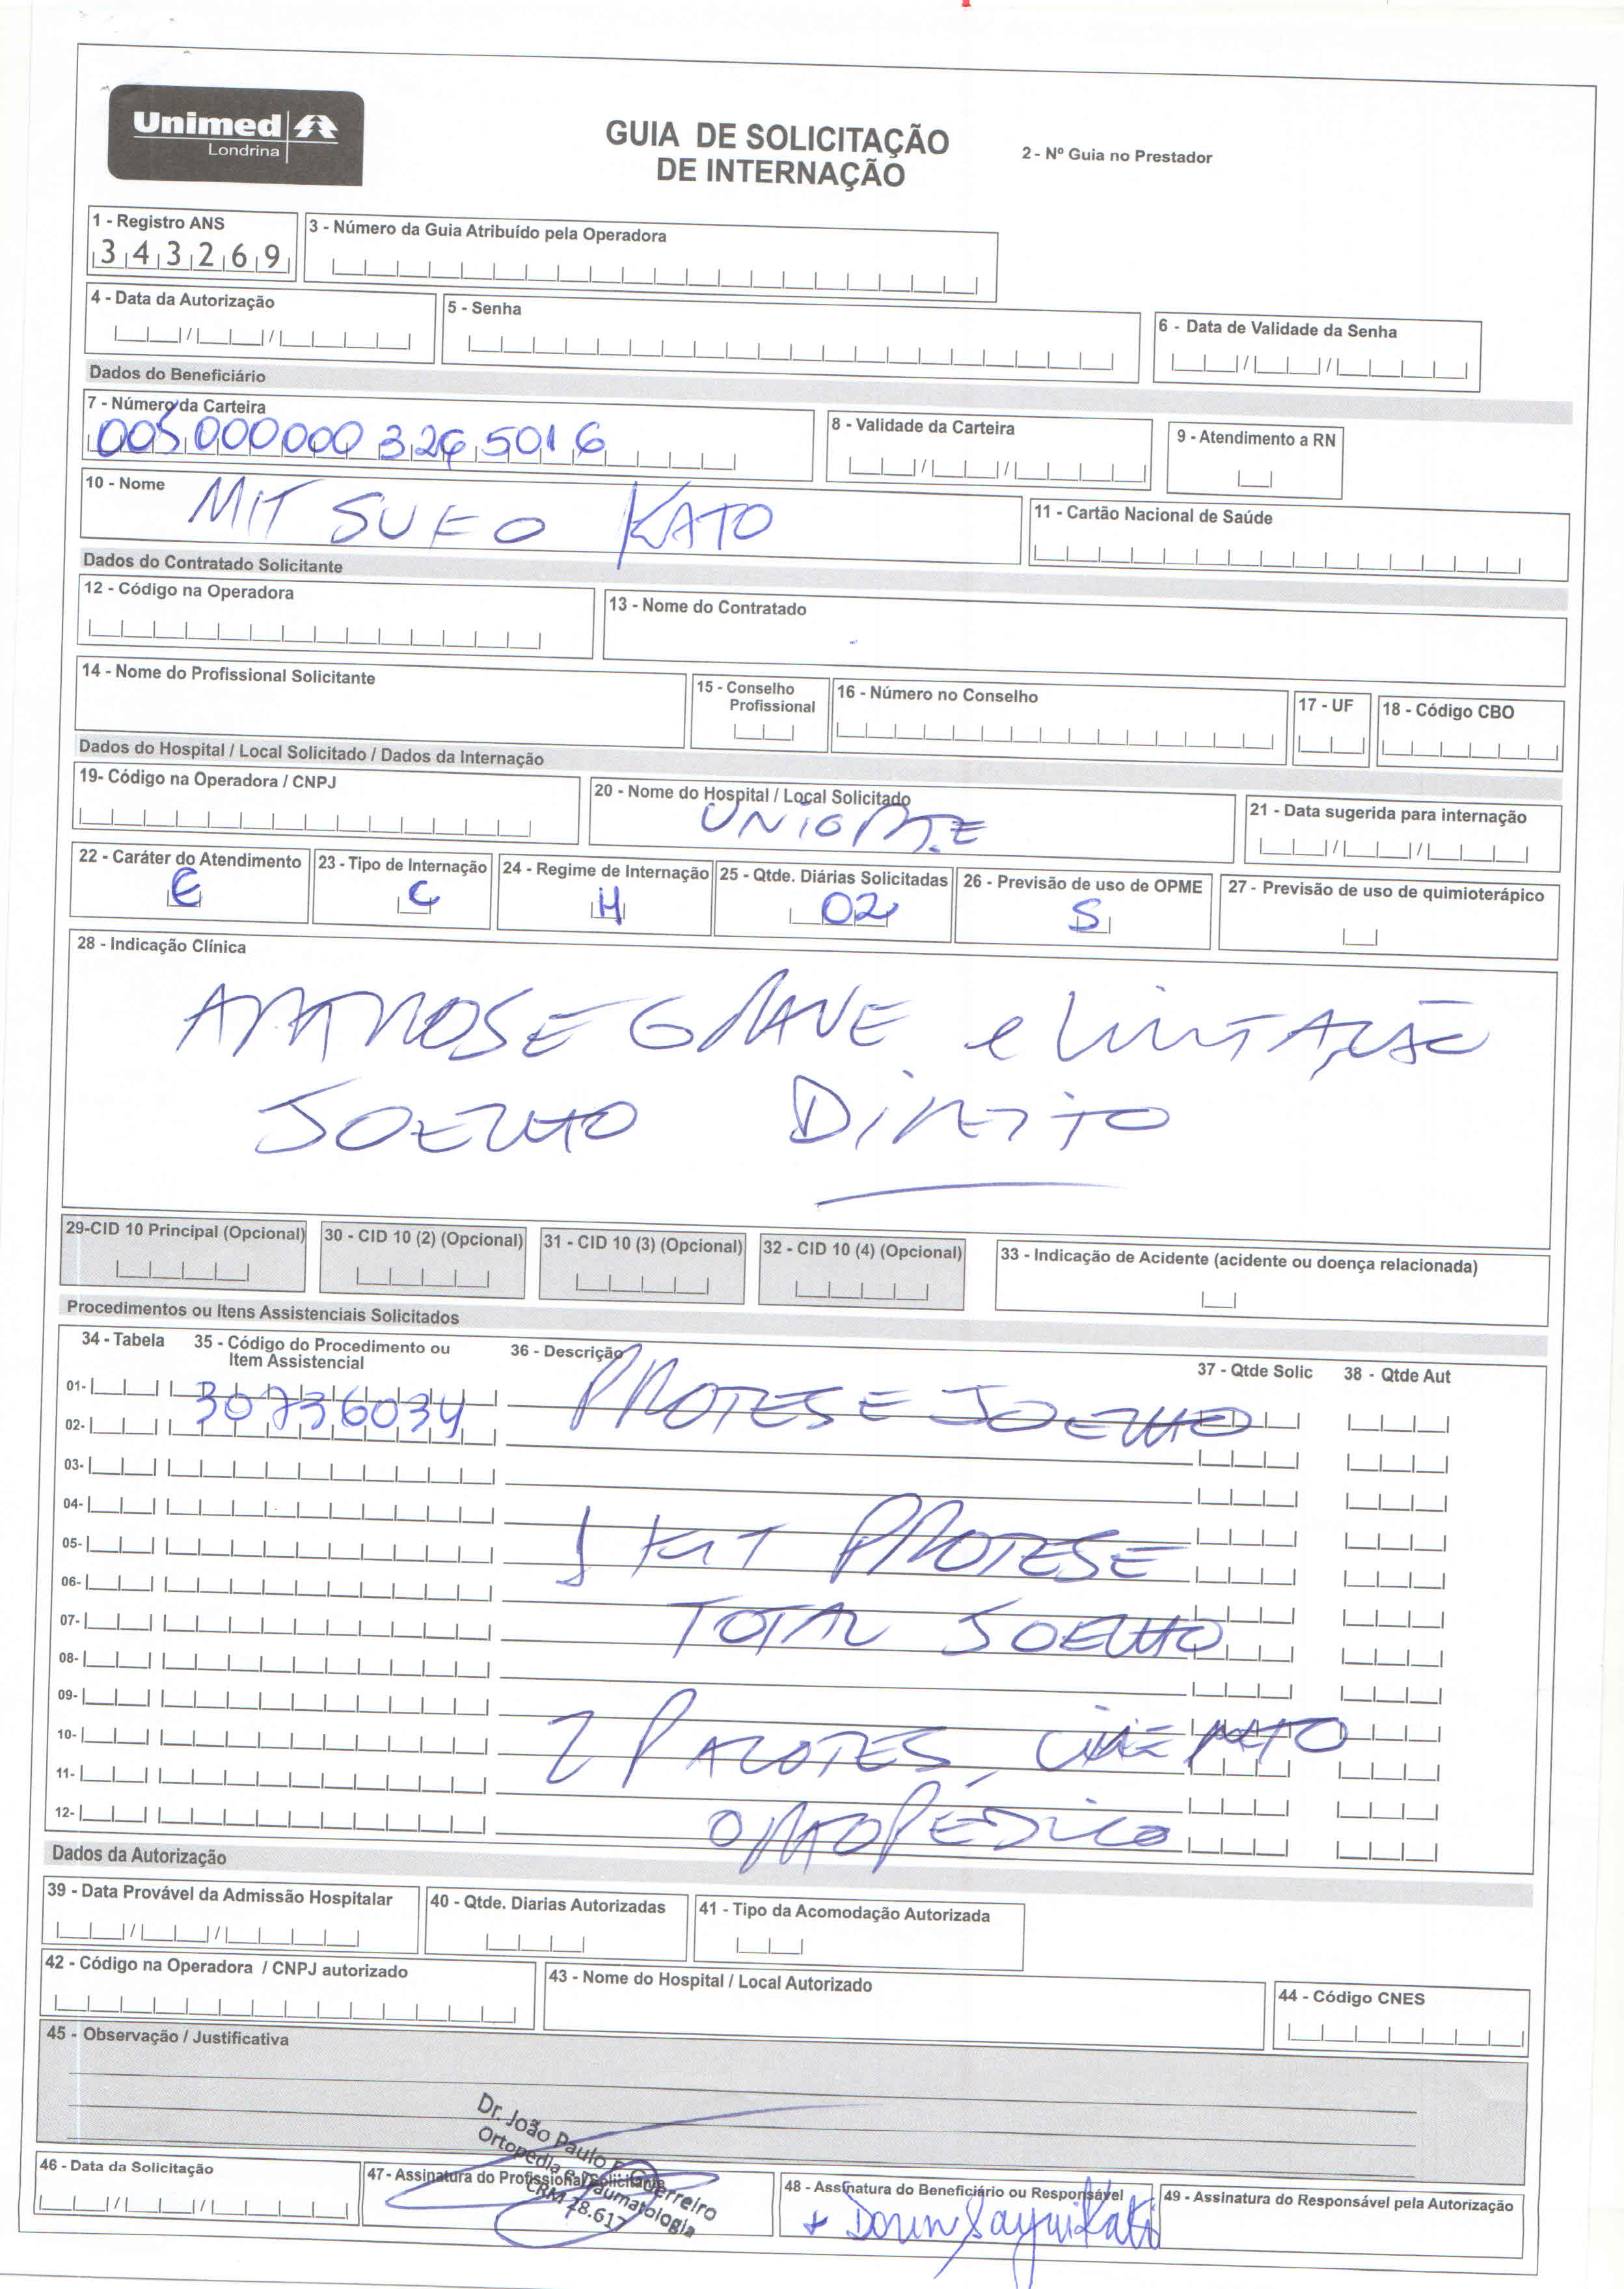 Unimed
Londrina
GUIA DE SOLICITAÇÃO
DE INTERNAÇÃO
2 - Nº Guia no Prestador
1 - Registro ANS
343269
3 - Número da Guia Atribuído pela Operadora
4 - Data da Autorização
5 - Senha
6 - Data de Validade da Senha
Dados do Beneficiário
7 - Número da Carteira
0050000003265016
8 - Validade da Carteira
9 - Atendimento a RN
10 - Nome
MITSUEO KATO
11 - Cartão Nacional de Saúde
Dados do Contratado Solicitante
12 - Código na Operadora
13 - Nome do Contratado
14 - Nome do Profissional Solicitante
15 - Conselho Profissional
16 - Número no Conselho
17 - UF
18 - Código CBO
Dados do Hospital / Local Solicitado / Dados da Internação
19- Código na Operadora / CNPJ
20 - Nome do Hospital / Local Solicitado
UNIORTE
21 - Data sugerida para internação
22 - Caráter do Atendimento
E
23 - Tipo de Internação
C
24 - Regime de Internação
H
25 - Qtde. Diárias Solicitadas
02
26 - Previsão de uso de OPME
S
27 - Previsão de uso de quimioterápico
28 - Indicação Clínica
ARTROSE GRAVE e LIMITAÇÃO
JOELHO DIREITO
29-CID 10 Principal (Opcional)
30 - CID 10 (2) (Opcional)
31 - CID 10 (3) (Opcional)
32 - CID 10 (4) (Opcional)
33 - Indicação de Acidente (acidente ou doença relacionada)
Procedimentos ou Itens Assistenciais Solicitados
34 - Tabela
35 - Código do Procedimento ou
Item Assistencial
36 - Descrição
37 - Qtde Solic
38 - Qtde Aut
01-
30736034 PROTESE JOELHO
02-
03-
04-
05-
1 KIT PROTESE
06-
07-
TOTAL JOELHO
08-
09-
10-
2 PACOTES CIMENTO
11-
12-
ORTOPÉDICO
Dados da Autorização
39 - Data Provável da Admissão Hospitalar
40 - Qtde. Diarias Autorizadas
41 - Tipo da Acomodação Autorizada
42 - Código na Operadora / CNPJ autorizado
43 - Nome do Hospital / Local Autorizado
44 - Código CNES
45 - Observação / Justificativa
46 - Data da Solicitação
47 - Assinatura do Profissional Solicitante
Dr. João Paulo F. Guerreiro
Ortopedia e Traumatologia
CRM 18.617
48 - Assinatura do Beneficiário ou Responsável
49 - Assinatura do Responsável pela Autorização